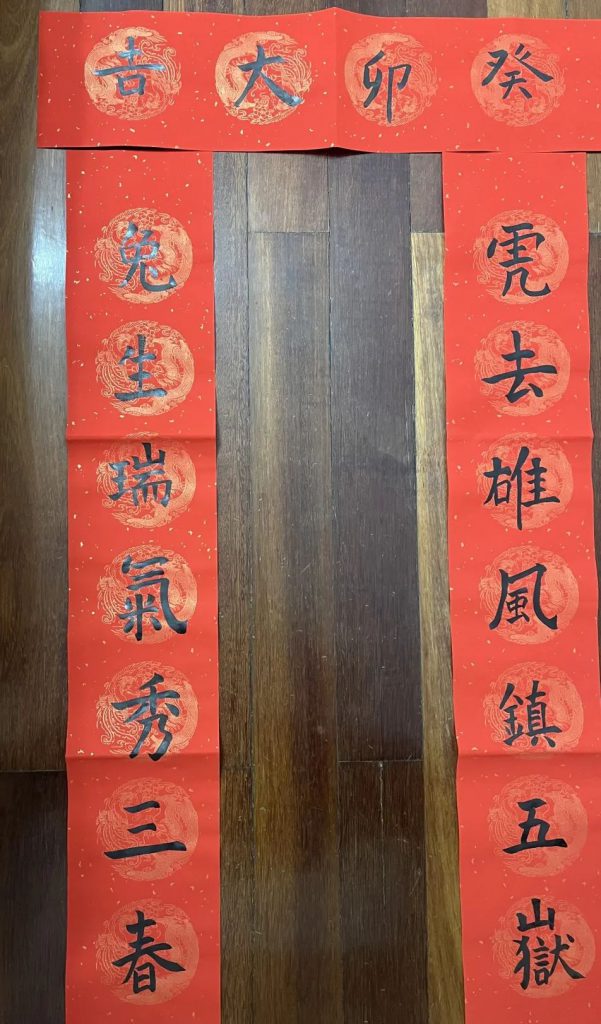 癸卯大吉
虎去雄風鎮五嶽
兔生瑞氣秀三春